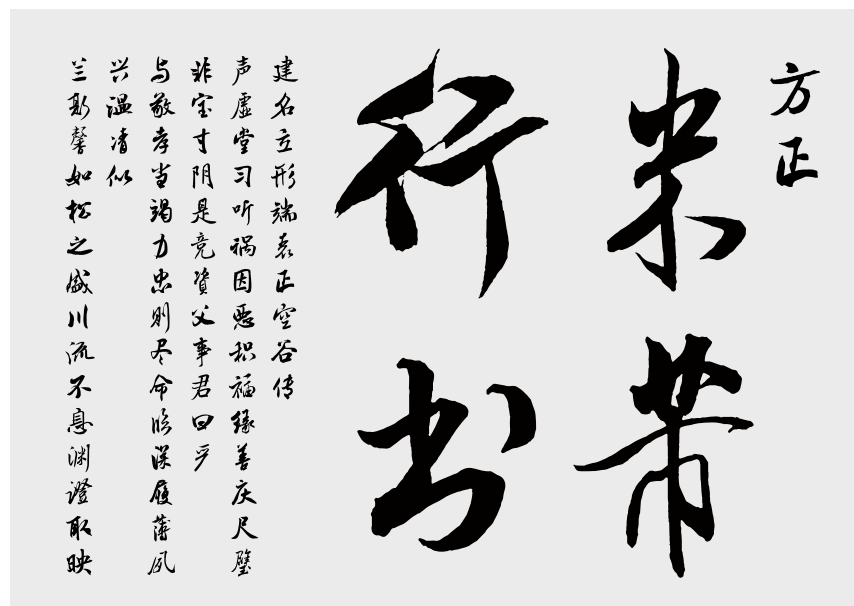 方正
米芾
行书
建名立形端表正空谷传
声虚堂习听祸因恶积福缘善庆尺璧
非宝寸阴是竞资父事君曰严
与敬孝当竭力忠则尽命临深履薄夙
兴温凊似
兰斯馨如松之盛川流不息渊澄取映